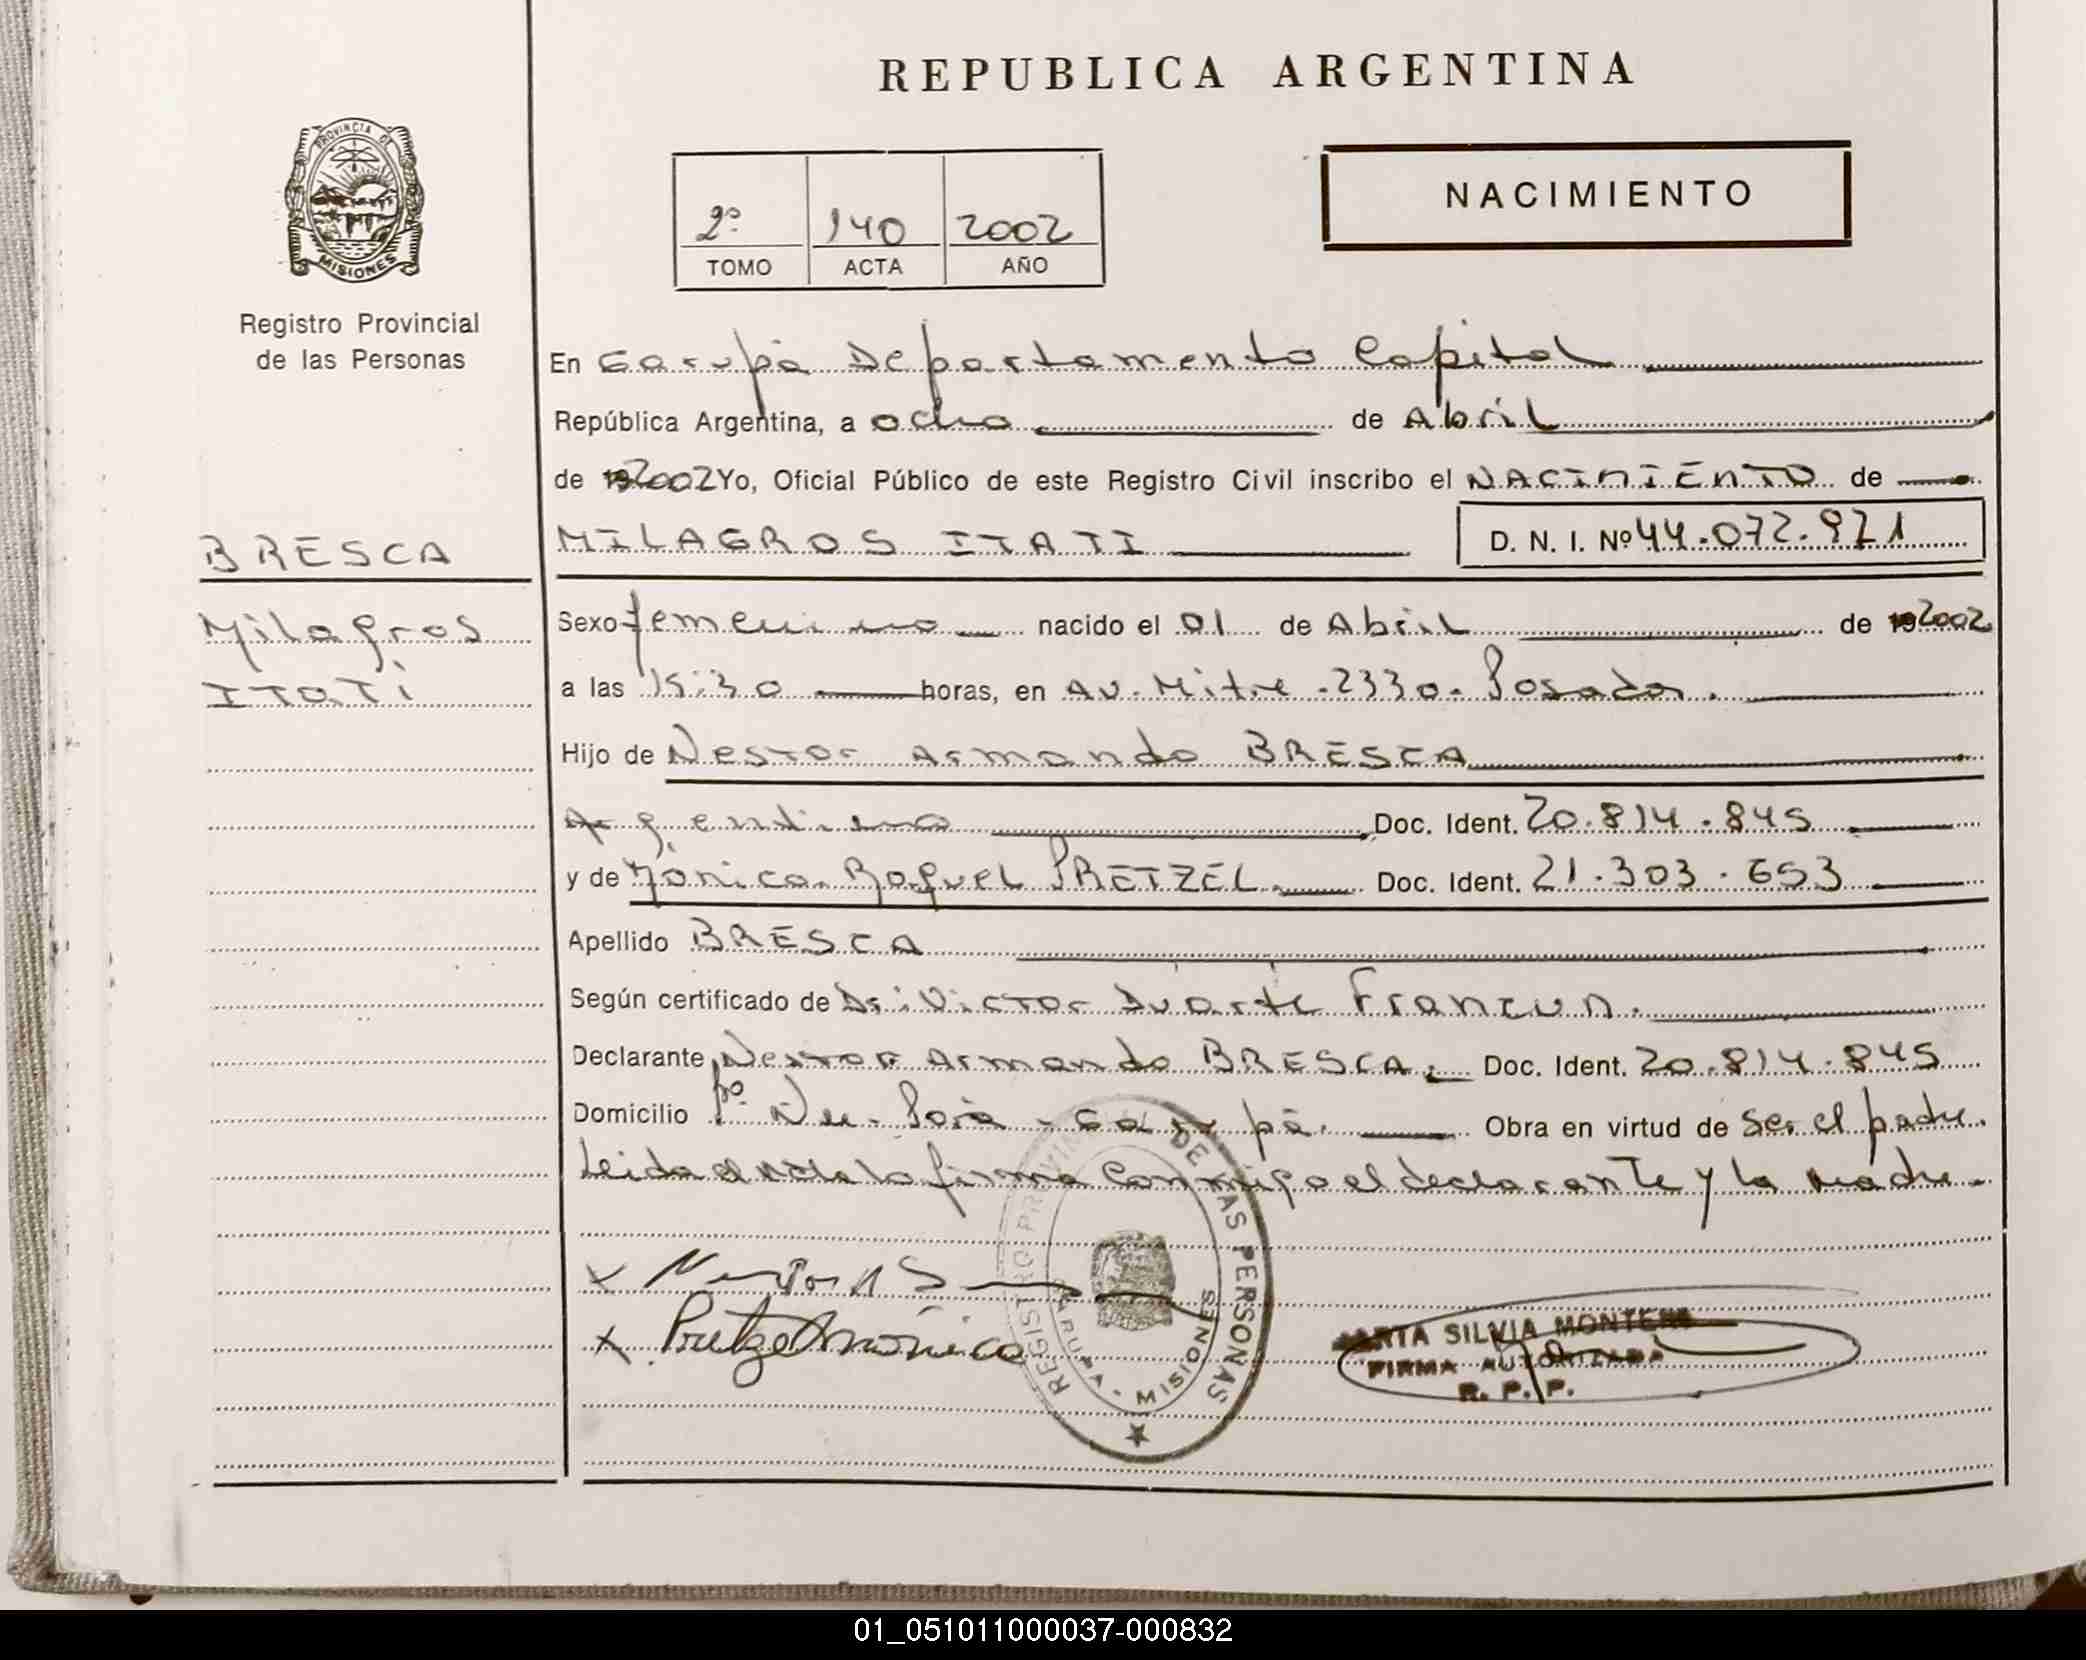 REPUBLICA ARGENTINA
PROVINCIA DE
MISIONES
Registro Provincial
de las Personas
2º 140 2002
TOMO ACTA AÑO
NACIMIENTO
En Garupá Departamento Capital
República Argentina, a ocho de Abril
de 192002 Yo, Oficial Público de este Registro Civil inscribo el NACIMIENTO de
MILAGROS ITATI D. N. I. Nº 44.072.921
BRESCA
Milagros
ITATI
Sexo femenino nacido el 01 de Abril de 192002
a las 15:30 horas, en Av. Mitre .2330. Posadas.
Hijo de Nestor Armando BRESCA
Argentino Doc. Ident. 20.814.845
y de Mónica Raquel PRETZEL Doc. Ident. 21.303.653
Apellido BRESCA
Según certificado de Dr: Victor Duarte
Declarante Nestor Armando BRESCA. Doc. Ident. 20.814.845
Domicilio Bº Ñu-Porá - Garupá. Obra en virtud de ser el padre.
Leida el Acta la firma conmigo el declarante y la madre.
x Nestor A
x Pretzel Mónica
REGISTRO PROVINCIAL DE LAS PERSONAS
GARUPA - MISIONES
SILVIA
FIRMA AUTORIZADA
R. P. P.
01_051011000037-000832